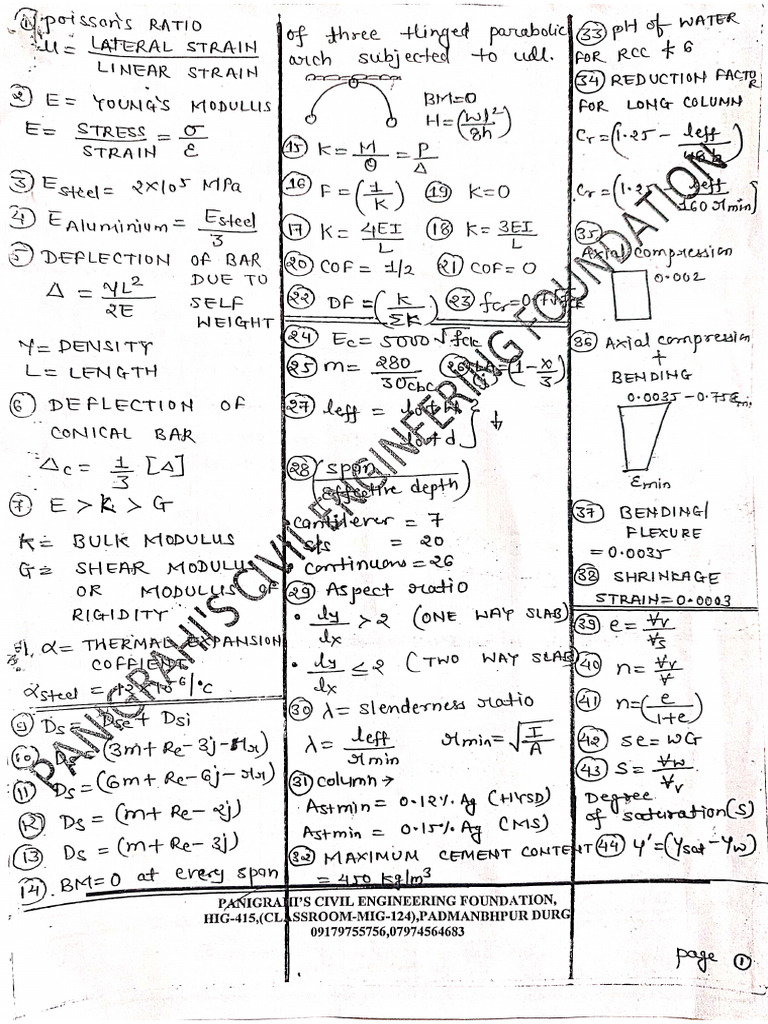 ① POISSON'S RATIO
μ = LATERAL STRAIN / LINEAR STRAIN
② E = YOUNG'S MODULUS
E = STRESS / STRAIN = σ / ε
③ E steel = 2×10⁵ MPa
④ E Aluminium = E steel / 3
⑤ DEFLECTION OF BAR
DUE TO
SELF
WEIGHT
Δ = γL² / 2E
γ = DENSITY
L = LENGTH
⑥ DEFLECTION OF
CONICAL BAR
Δc = 1/3 [Δ]
⑦ E > K > G
K = BULK MODULUS
G = SHEAR MODULUS
OR MODULUS OF
RIGIDITY
α = THERMAL EXPANSION
COFFIENT
α steel = 12 × 10⁻⁶/°C
⑨ Ds = Dse + Dsi
⑩ Ds = (3m + Re - 3j - rr)
⑪ Ds = (6m + Re - 6j - rr)
⑫ Ds = (m + Re - 2j)
⑬ Ds = (m + Re - 3j)
⑭ BM=0 at every span
of three Hinged parabolic
arch subjected to udl.
BM=0
H = (wl² / 8h)
⑮ K = M/θ = P/Δ
⑯ F = (1/K) ⑲ K=0
⑰ K = 4EI/L ⑱ K = 3EI/L
⑳ COF = 1/2 ㉑ COF = 0
㉒ DF = (K / ΣK) ㉓ fcr = 0.7√fck
㉔ Ec = 5000√fck
㉕ m = 280 / 3σcbc ㉖ = (1 - x/3)
㉗ leff =
lo + d
㉘ (span / Effective depth)
cantilever = 7
s/s = 20
continuous = 26
㉙ Aspect ratio
• ly/lx > 2 (ONE WAY SLAB)
• ly/lx ≤ 2 (TWO WAY SLAB)
㉚ λ = slenderness ratio
λ = leff / rmin rmin = √(I/A)
㉛ column →
Astmin = 0.12% Ag (HYSD)
Astmin = 0.15% Ag (MS)
㉜ MAXIMUM CEMENT CONTENT
= 450 kg/m³
㉝ pH of WATER
FOR RCC ≮ 6
㉞ REDUCTION FACTOR
FOR LONG COLUMN
Cr = (1.25 - leff / 48 b)
Cr = (1.25 - leff / 160 rmin)
㉟
Axial compression
0.002
㊱ Axial compression
+
BENDING
0.0035 - 0.75 εmin
εmin
㊲ BENDING/
FLEXURE
= 0.0035
㊳ SHRINKAGE
STRAIN = 0.0003
㊴ e = Vv / Vs
㊵ n = Vv / V
㊶ n = (e / 1+e)
㊷ se = wG
㊸ S = Vw / Vv
Degree
of saturation(s)
㊹ γ' = (γsat - γw)
PANIGRAHI'S CIVIL ENGINEERING FOUNDATION
PANIGRAHI'S CIVIL ENGINEERING FOUNDATION,
HIG-415,(CLASSROOM-MIG-124),PADMANBHPUR DURG
09179755756,07974564683
page ①